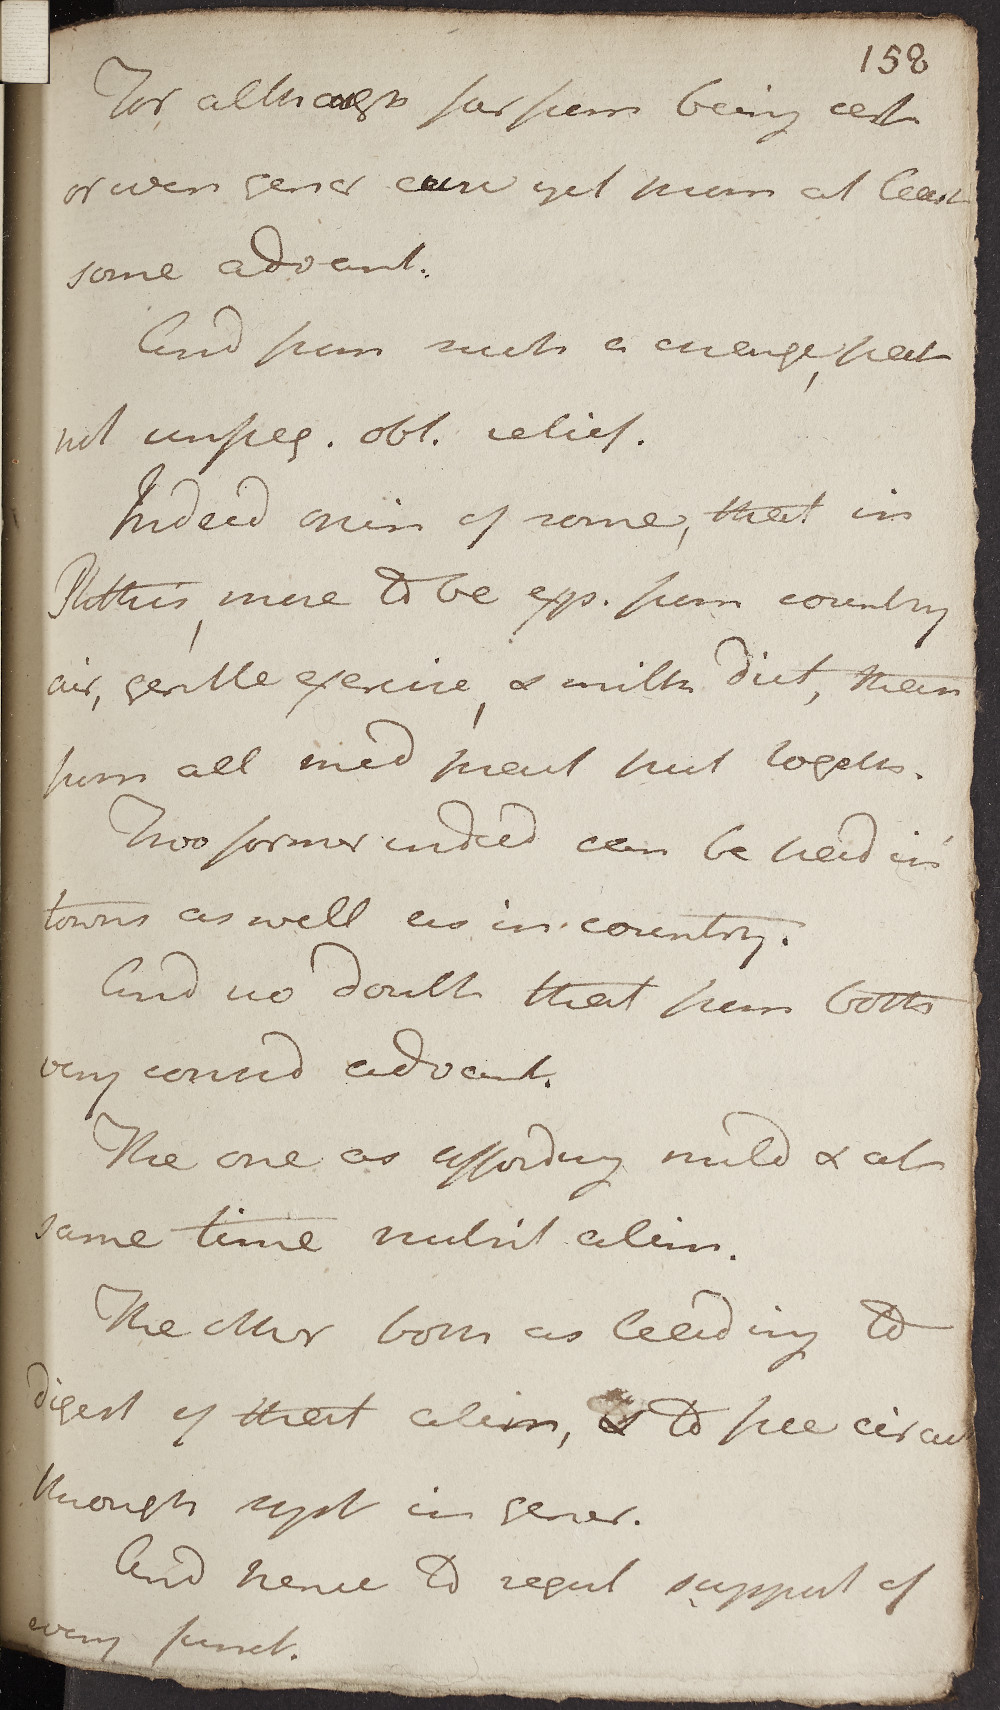 158
For although far from being cert
or even gener cure yet from at least
some advant.
And from such a change, pat
not unfreq. obt. relief.
Indeed opin of some, that in
Phthis, more to be exp. from country
air, gentle exercise, & milk diet, than
from all med that put togeth.
Two former indeed can be had in
towns as well as in country.
And no doubt that from both
very consid advant.
The one as affording mild & at
same time nutrit alim.
The other both as leading to
digest of that alim, & to free circul
through syst in gener.
And hence to regul support of
every funct.